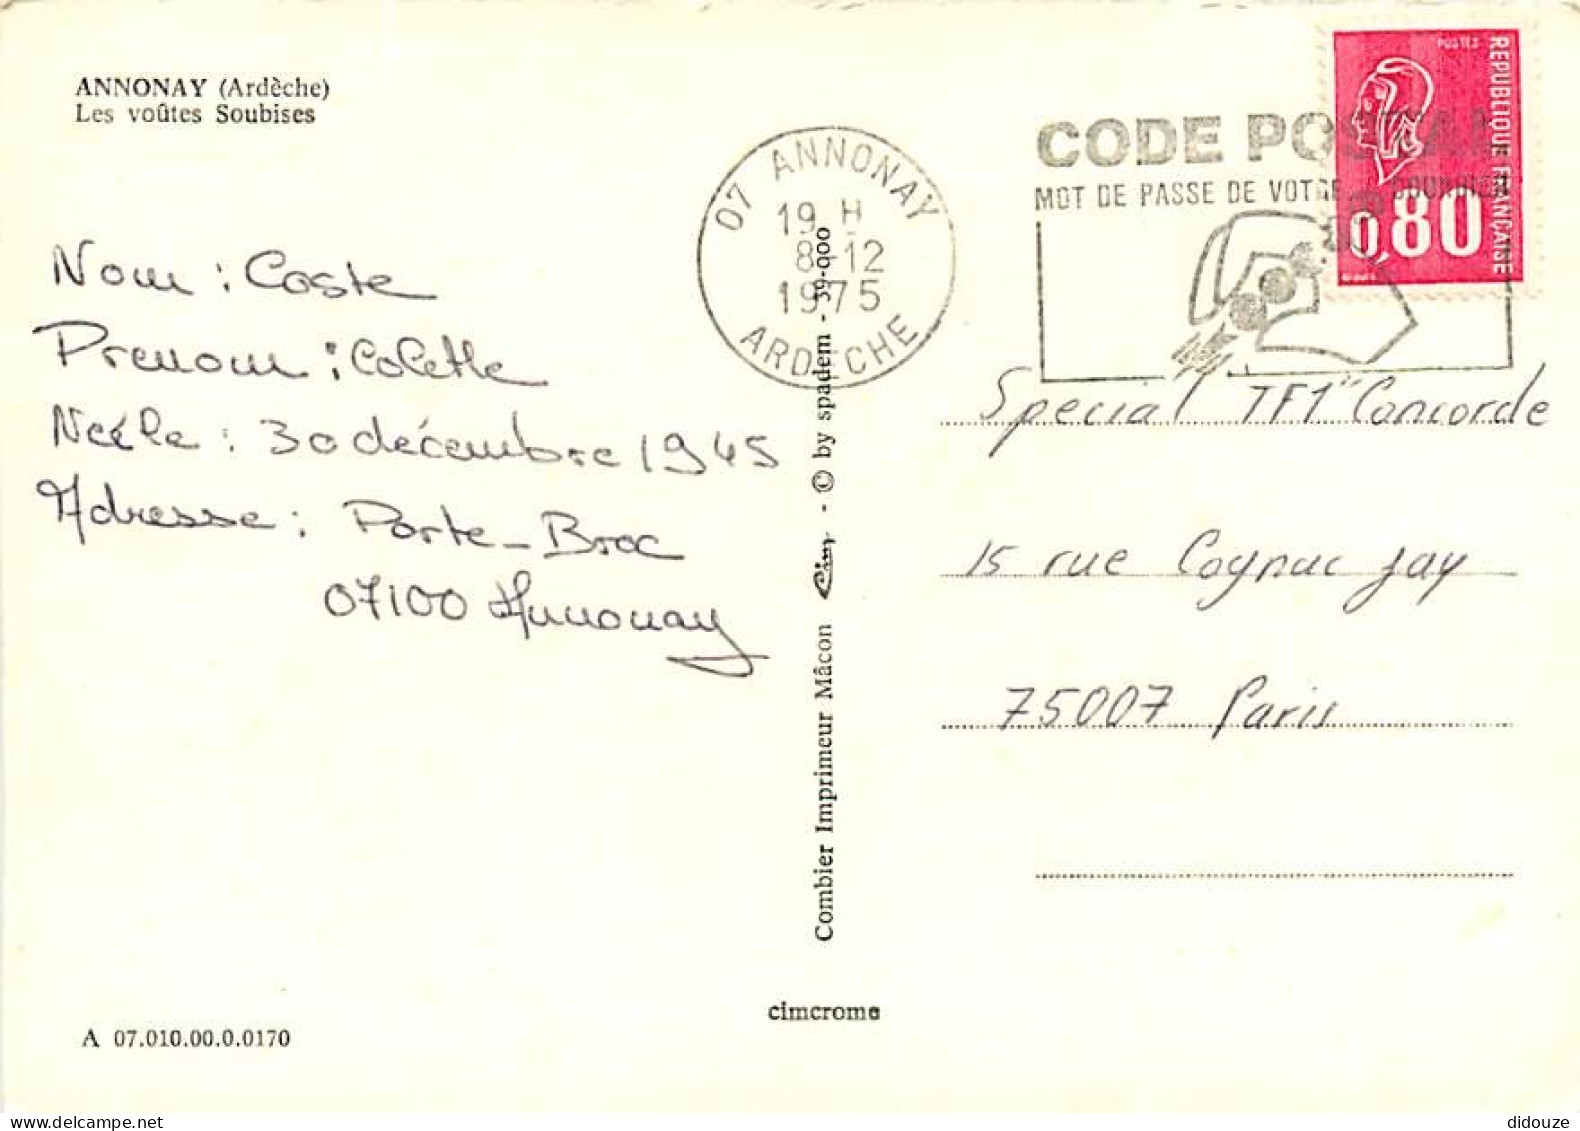 ANNONAY (Ardèche)
Les voûtes Soubises
Nom : Coste
Prenom : Colette
Néele : 30 décembre 1945
Adresse : Porte-Broc
07100 Annonay
A 07.010.00.0.0170
07 ANNONAY
19 H
8-12
1975
ARDECHE
Combier Imprimeur Mâcon Cim - © by spadem - 39-000
cimcrome
CODE POSTAL
MOT DE PASSE DE VOTRE COURRIER
POSTES
REPUBLIQUE FRANÇAISE
0,80
Special TF1 "Concorde
15 rue Cognac Jay
75007 Paris
didouze